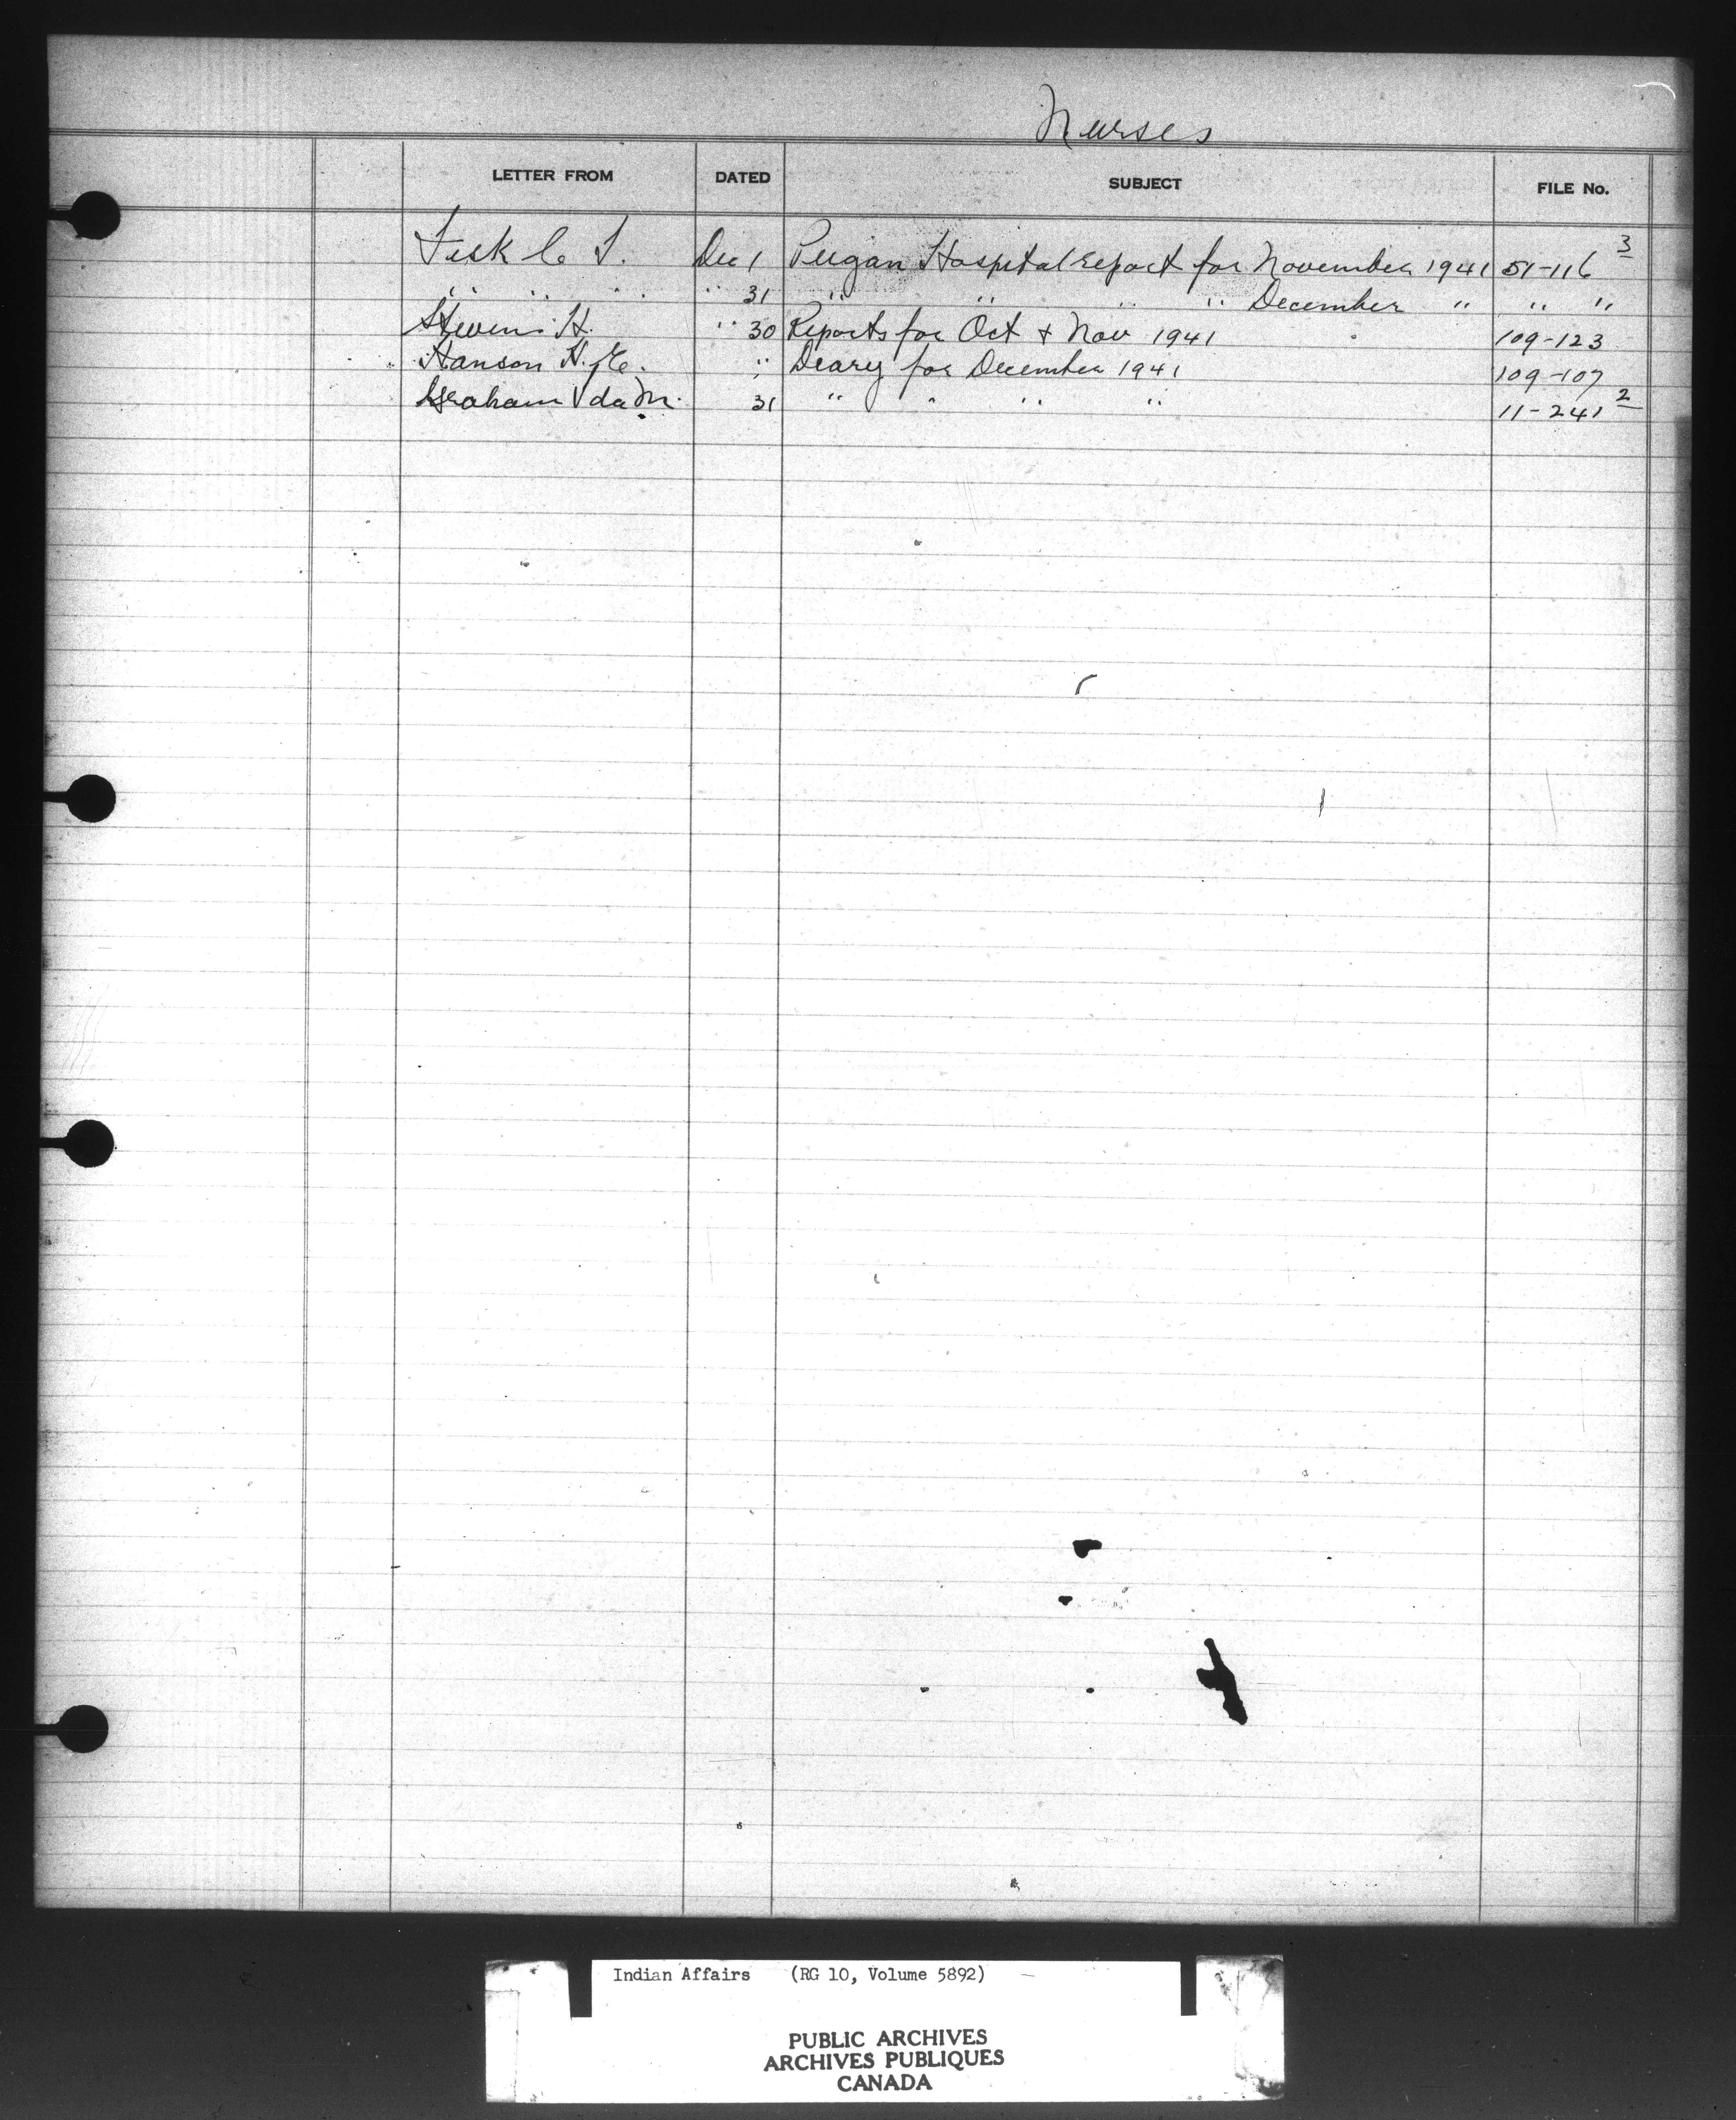 Nurses
LETTER FROM DATED SUBJECT FILE No.
Fisk C. T. Dec 1 Peigan Hospital report for November 1941 51-116 3
" " " " " 31 " " " " December " " "
Stevens H. " 30 Reports for Oct & Nov 1941 109-123
Hanson H. " Diary for December 1941 109-107
Graham Ida M. 31 " " " " 11-241 2
Indian Affairs (RG 10, Volume 5892)
PUBLIC ARCHIVES
ARCHIVES PUBLIQUES
CANADA